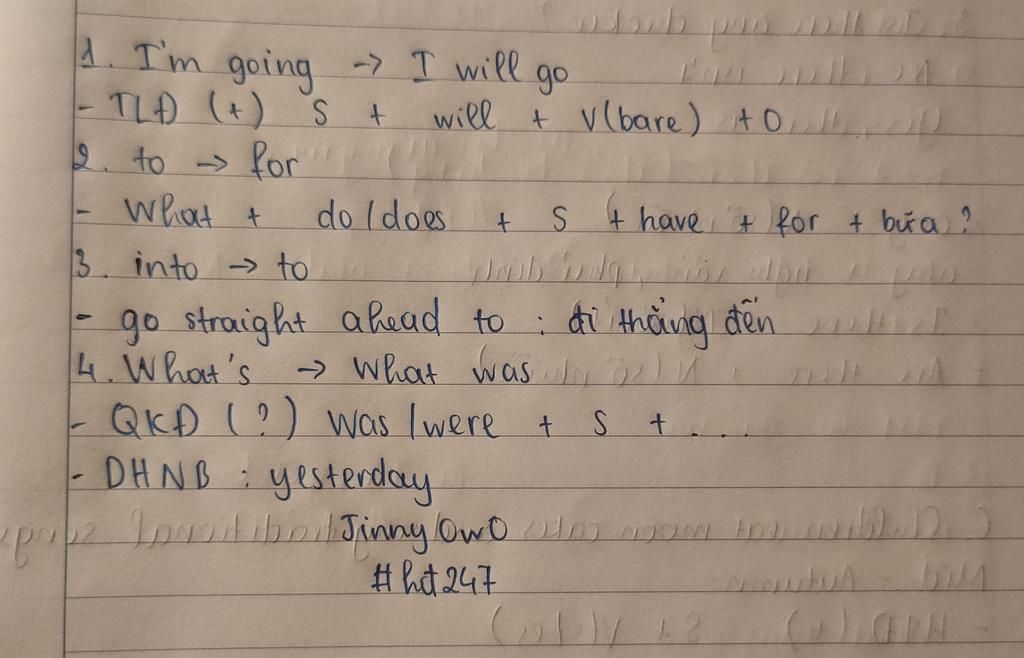 1. I'm going → I will go
- TLĐ (+) S + will + V(bare) + O
2. to → for
- What + do/does + S + have + for + bữa ?
3. into → to
- go straight ahead to : đi thẳng đến
4. What's → What was
- QKĐ (?) Was/were + S + ...
- DHNB : yesterday
Jinny/OwO
#hđ247